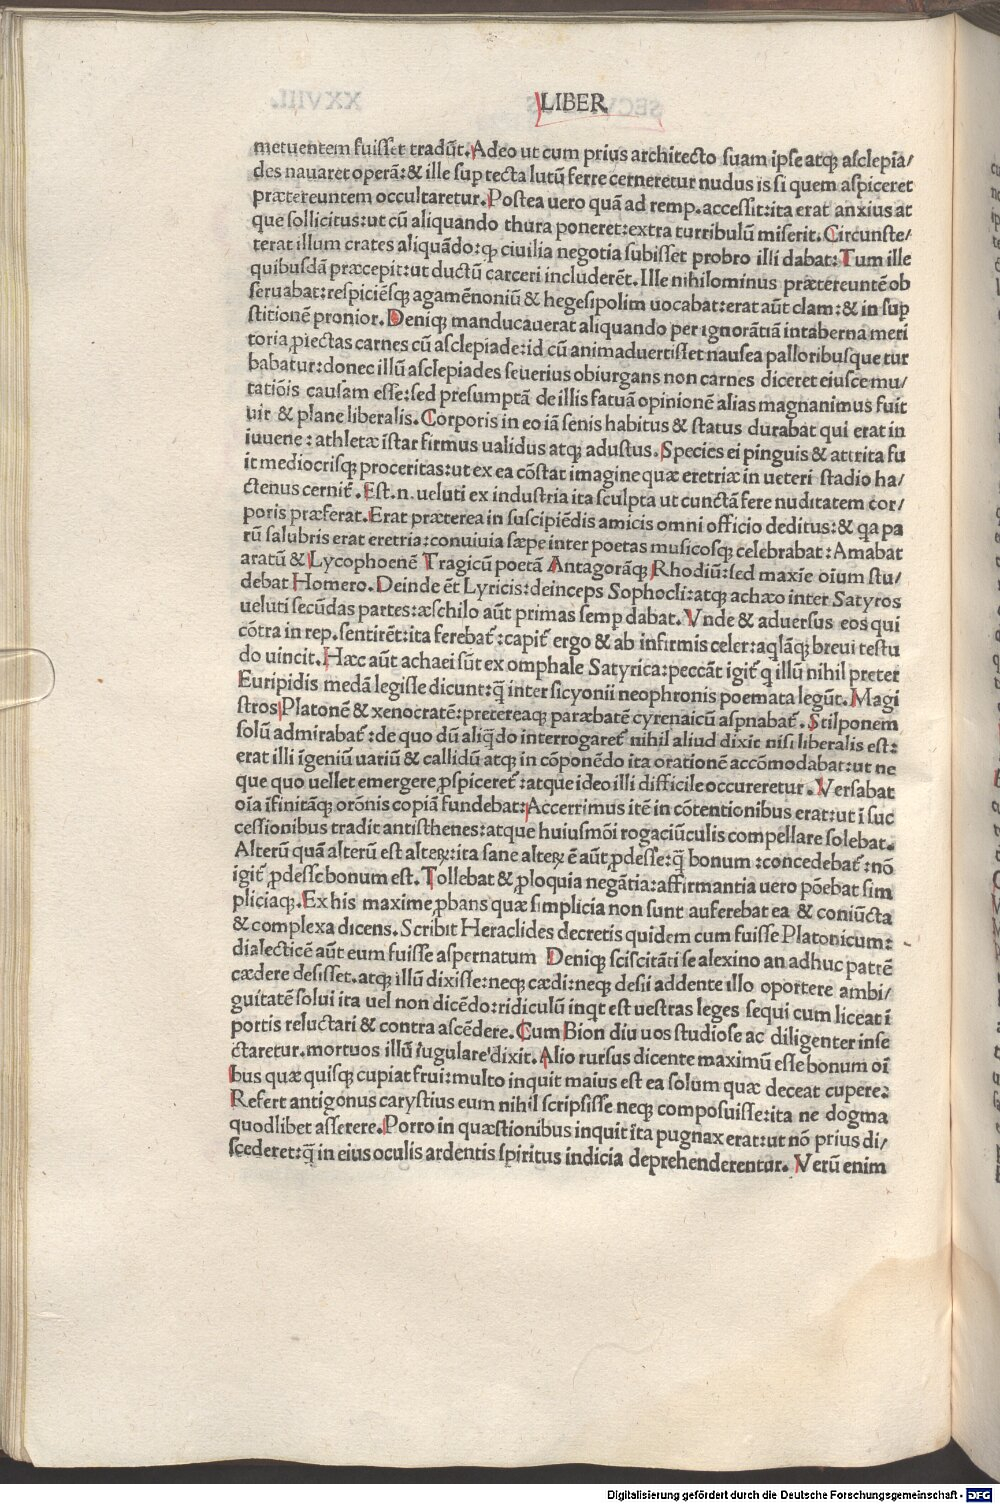 LIBER
metuentem fuisset tradūt. Adeo ut cum prius architecto suam ipse atq; asclepia/
des nauaret operā: & ille sup tecta lutū ferre cerneretur nudus is si quem aspiceret
prætereuntem occultaretur. Postea uero quā ad remp. accessit: ita erat anxius at
que sollicitus: ut cū aliquando thura poneret: extra turribulū miserit. Circunste/
terat illum crates aliquādo: ꝙ ciuilia negotia subisset probro illi dabat: Tum ille
quibusdā præcepit: ut ductū carceri includerēt. Ille nihilominus prætereuntē ob
seruabat: respiciēsq; agamēnoniū & hegesipolim uocabat: erat aūt clam: & in sup
stitionē pronior. Deniq; manducauerat aliquando per ignorātiā in taberna meri
toria ꝓiectas carnes cū asclepiade: id cū animaduertisset nausea palloribusque tur
babatur: donec illū asclepiades seuerius obiurgans non carnes diceret eiusce mu/
tatiōis causam esse: sed presumptā de illis fatuā opinionē alias magnanimus fuit
uir & plane liberalis. Corporis in eo iā senis habitus & status durabat qui erat in
iuuene: athletæ īstar firmus ualidus atq; adustus. Species ei pinguis & attrita fu
it mediocrisq; proceritas: ut ex ea cōstat imagine quæ eretriæ in ueteri stadio ha/
ctenus cernit̄. Est. n. ueluti ex industria ita sculpta ut cunctā fere nuditatem cor/
poris præferat. Erat præterea in suscipiēdis amicis omni officio deditus: & qa pa
rū salubris erat eretria: conuiuia sæpe inter poetas musicosq; celebrabat: Amabat
aratū & Lycophoenē Tragicū poetā Antagorāq; Rhodiū: sed maxīe oium stu/
debat Homero. Deinde ēt Lyricis: deinceps Sophocli: atq; achæo inter Satyros
ueluti secūdas partes: æschilo aūt primas semp dabat. Vnde & aduersus eos qui
cōtra in rep. sentirēt: ita ferebat̄: capit̄ ergo & ab infirmis celer: aqlāq; breui testu
do uincit. Hæc aūt achaei sūt ex omphale Satyrica: peccāt igit̄ q illū nihil preter
Euripidis medā legisse dicunt: q̄ inter sicyonii neophronis poemata legūt. Magi
stros Platonē & xenocratē: pretereaq; paræbatē cyrenaicū aspnabat̄. Stilponem
solū admirabat̄: de quo dū aliq̄do interrogaret̄ nihil aliud dixit nisi liberalis est:
erat illi īgeniū uariū & callidū atq; in cōponēdo ita orationē accōmodabat: ut ne
que quo uellet emergere ꝑspiceret̄: atque ideo illi difficile occureretur. Versabat
oīa īfinitāq; orōnis copiā fundebat: Accerrimus itē in cōtentionibus erat: ut ī suc
cessionibus tradit antisthenes: atque huiusmōi rogaciūculis compellare solebat.
Alterū quā alterū est alteꝝ: ita sane alteꝝ ē aūt ꝓdesse: q̄ bonum: concedebat̄: nō
igit̄ ꝓdesse bonum est. Tollebat & ꝓloquia negātia: affirmantia uero pōebat sim
pliciaq;. Ex his maxime ꝓbans quæ simplicia non sunt auferebat ea & coniūcta
& complexa dicens. Scribit Heraclides decretis quidem cum fuisse Platonicum:
dialecticē aūt eum fuisse aspernatum Deniq; sciscitāti se alexino an adhuc patrē
cædere desisset. atq; illū dixisse: neq; cædi: neq; desii addente illo oportere ambi/
guitatē solui ita uel non dicēdo: ridiculū inqt est uestras leges sequi cum liceat ī
portis reluctari & contra ascēdere. Cum Bion diu uos studiose ac diligenter inse
ctaretur. mortuos illū iugulare dixit. Alio rursus dicente maximū esse bonum oī
bus quæ quisq; cupiat frui: multo inquit maius est ea solum quæ deceat cupere:
Refert antigonus carystius eum nihil scripsisse neq; composuisse: ita ne dogma
quodlibet asserere. Porro in quæstionibus inquit īta pugnax erat: ut nō prius di/
scederet: q̄ in eius oculis ardentis spiritus indicia deprehenderentur. Verū enim
Digitalisierung gefördert durch die Deutsche Forschungsgemeinschaft - DFG